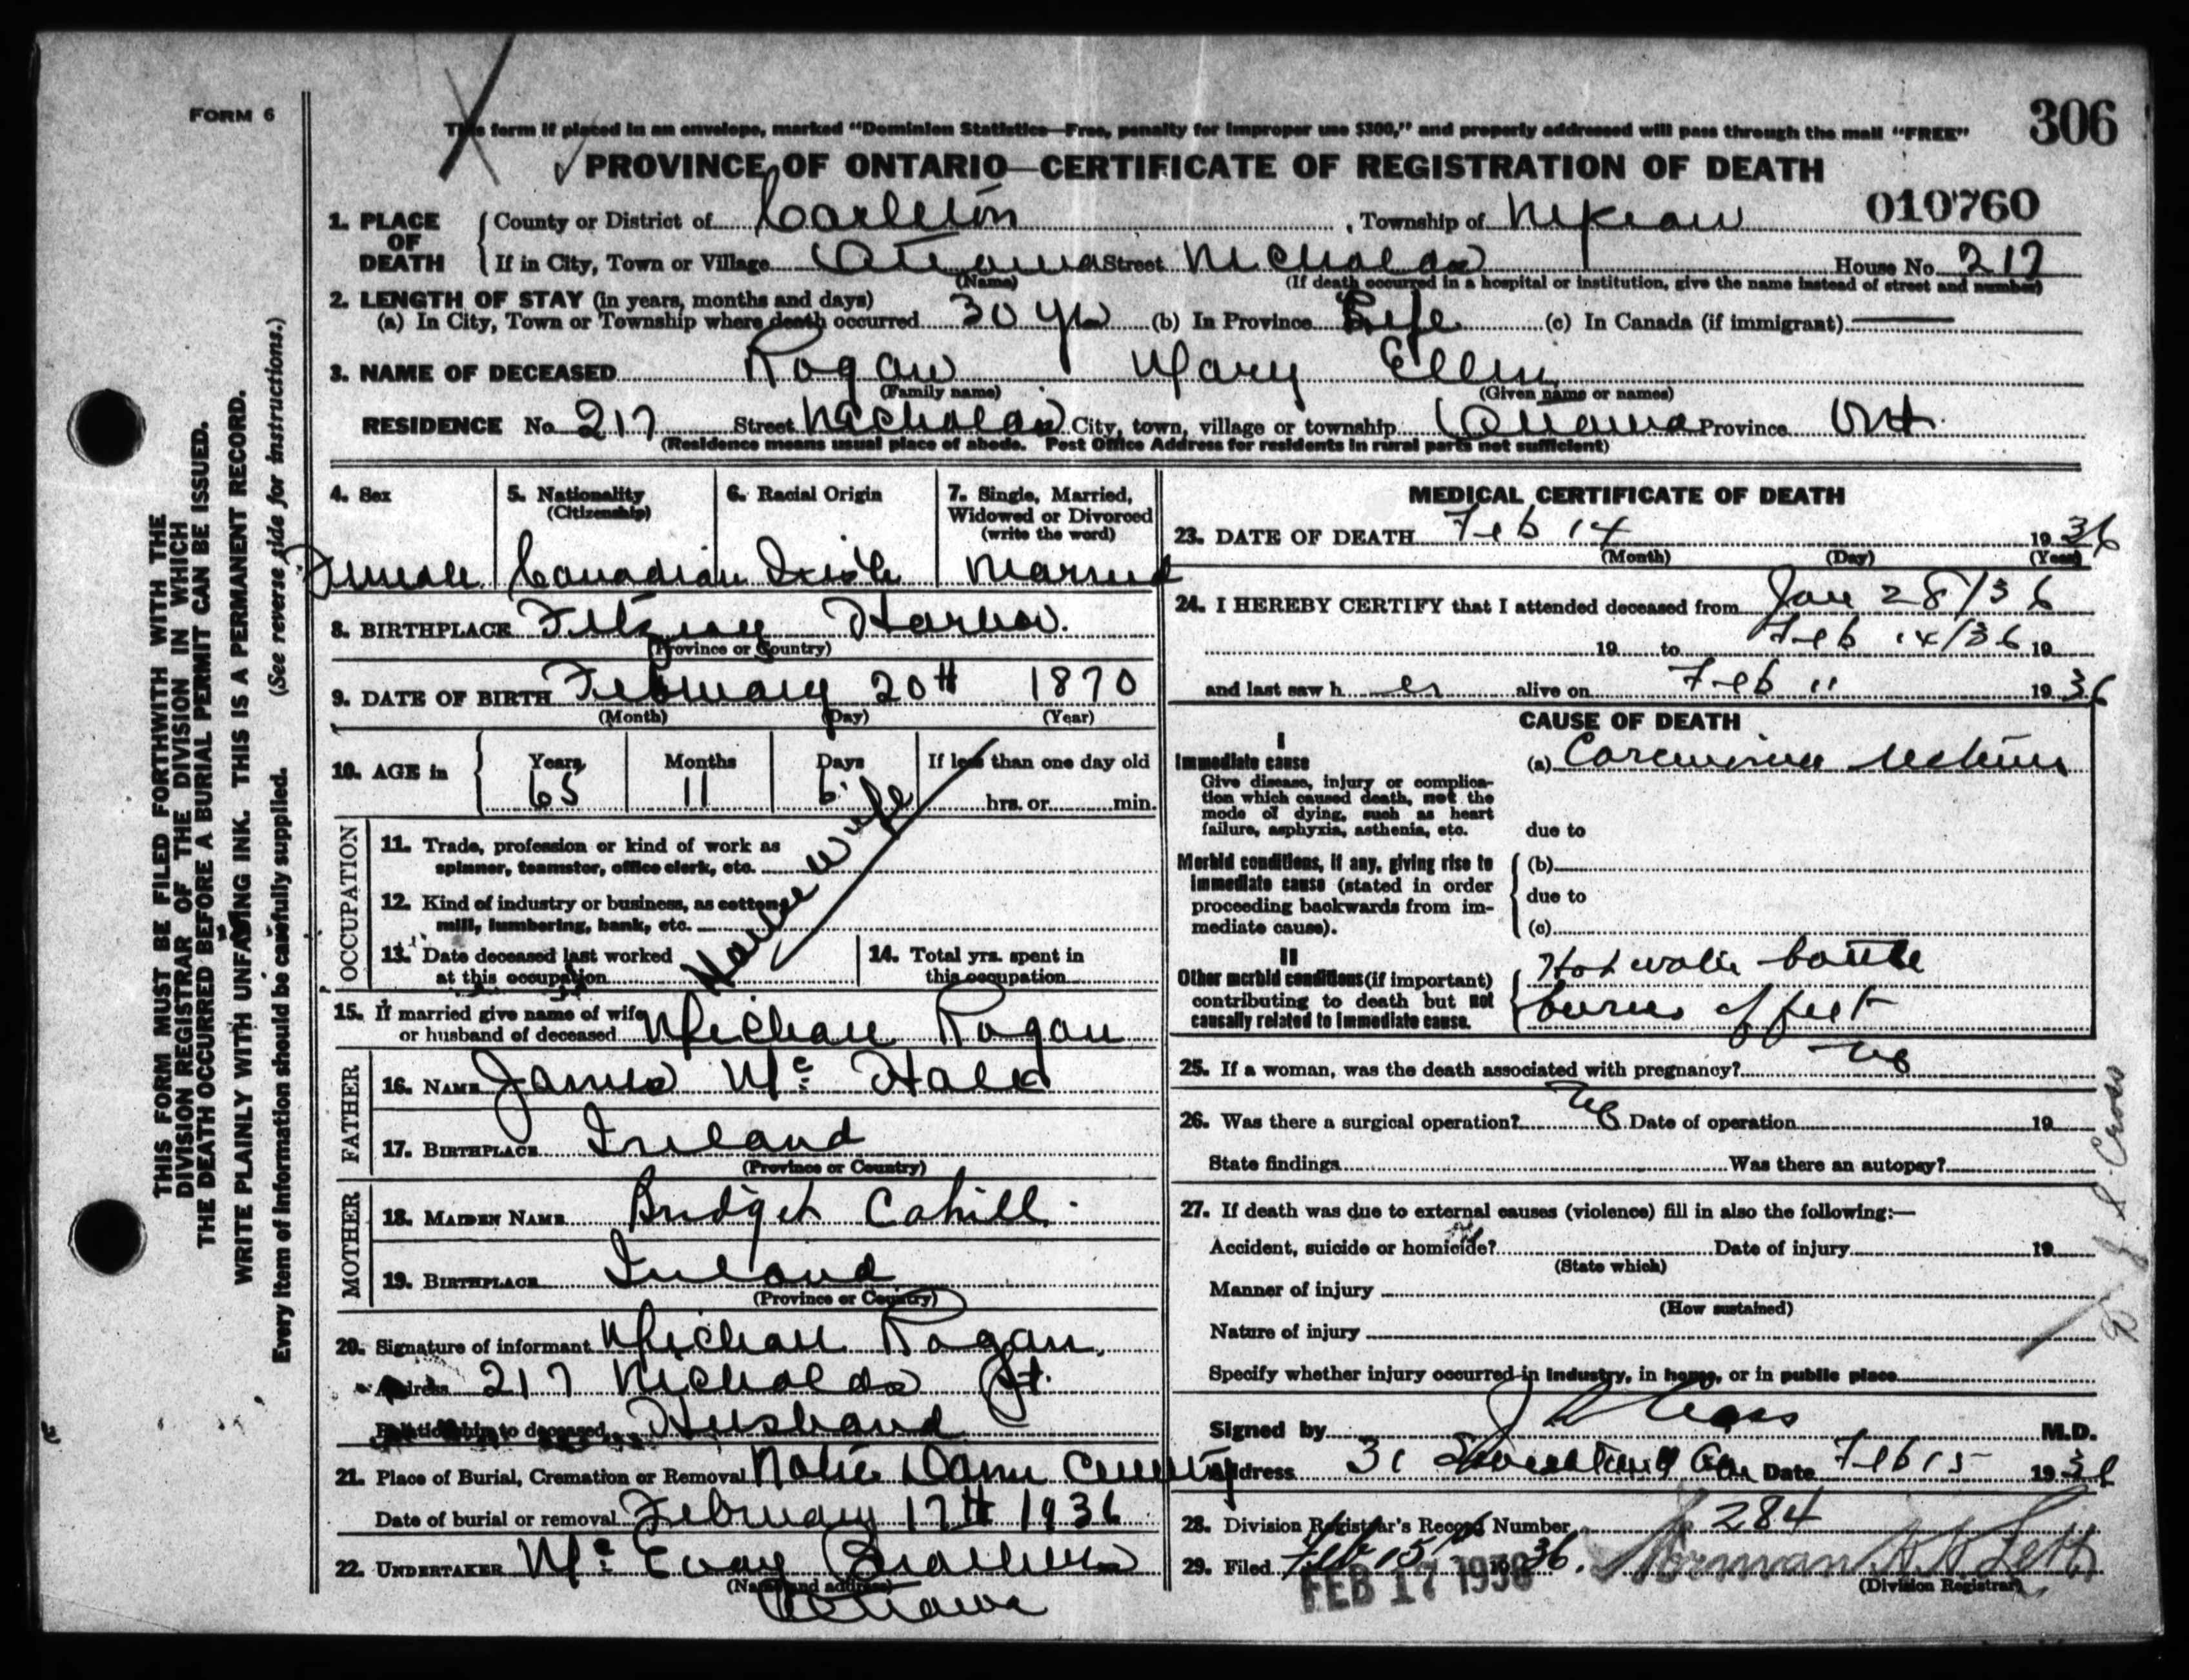 FORM 6
306
This form if placed in an envelope, marked "Dominion Statistics—Free, penalty for improper use $300," and properly addressed will pass through the mail "FREE"
PROVINCE OF ONTARIO—CERTIFICATE OF REGISTRATION OF DEATH
010760
1. PLACE OF DEATH
County or District of Carleton, Township of Nepean
If in City, Town or Village Ottawa Street Nicholas House No. 217
(Name) (If death occurred in a hospital or institution, give the name instead of street and number)
2. LENGTH OF STAY (in years, months and days)
(a) In City, Town or Township where death occurred 30 yrs (b) In Province Life (c) In Canada (if immigrant) —
3. NAME OF DECEASED Rogan Mary Ellen
(Family name) (Given name or names)
RESIDENCE No. 217 Street Nicholas City, town, village or township Ottawa Province Ont.
(Residence means usual place of abode. Post Office Address for residents in rural parts not sufficient)
4. Sex
Female
5. Nationality
(Citizenship)
Canadian
6. Racial Origin
Irish
7. Single, Married,
Widowed or Divorced
(write the word)
Married
8. BIRTHPLACE Fitzroy Harbor.
(Province or Country)
9. DATE OF BIRTH February 20th 1870
(Month) (Day) (Year)
10. AGE in
Years Months Days If less than one day old
65 11 6 hrs. or min.
OCCUPATION
11. Trade, profession or kind of work as
spinner, teamster, office clerk, etc.
12. Kind of industry or business, as cotton
mill, lumbering, bank, etc.
Housewife
13. Date deceased last worked
at this occupation
14. Total yrs. spent in
this occupation
15. If married give name of wife
or husband of deceased Michael Rogan
FATHER
16. NAME James Mc Hale
17. BIRTHPLACE Ireland
(Province or Country)
MOTHER
18. MAIDEN NAME Bridget Cahill
19. BIRTHPLACE Ireland
(Province or Country)
20. Signature of informant Michael Rogan
Address 217 Nicholas St.
Relationship to deceased Husband
21. Place of Burial, Cremation or Removal Notre Dame Cemetery
Date of burial or removal February 17th 1936
22. UNDERTAKER Mc Evoy Brothers
(Name and address)
Ottawa
MEDICAL CERTIFICATE OF DEATH
23. DATE OF DEATH Feb 14 1936
(Month) (Day) (Year)
24. I HEREBY CERTIFY that I attended deceased from Jan 28/36
19 to Feb 14/36 19
and last saw h er alive on Feb 11 1936
CAUSE OF DEATH
I
Immediate cause
Give disease, injury or complica-
tion which caused death, not the
mode of dying, such as heart
failure, asphyxia, asthenia, etc.
(a) Carcinoma rectum
due to
Morbid conditions, if any, giving rise to
immediate cause (stated in order
proceeding backwards from im-
mediate cause).
(b)
due to
(c)
II
Other morbid conditions (if important)
contributing to death but not
causally related to immediate cause.
Hot water bottle
burns of feet
25. If a woman, was the death associated with pregnancy? no
26. Was there a surgical operation? No Date of operation 19
State findings Was there an autopsy?
27. If death was due to external causes (violence) fill in also the following:—
Accident, suicide or homicide? Date of injury 19
(State which)
Manner of injury
(How sustained)
Nature of injury
Specify whether injury occurred in industry, in home, or in public place
Signed by M.D.
Address 31 Date Feb 15 1936
28. Division Registrar's Record Number 284
29. Filed Feb 15 1936.
(Division Registrar)
FEB 17 1936
THIS FORM MUST BE FILED FORTHWITH WITH THE
DIVISION REGISTRAR OF THE DIVISION IN WHICH
THE DEATH OCCURRED BEFORE A BURIAL PERMIT CAN BE ISSUED.
WRITE PLAINLY WITH UNFADING INK. THIS IS A PERMANENT RECORD.
Every item of information should be carefully supplied. (See reverse side for instructions.)
Cross